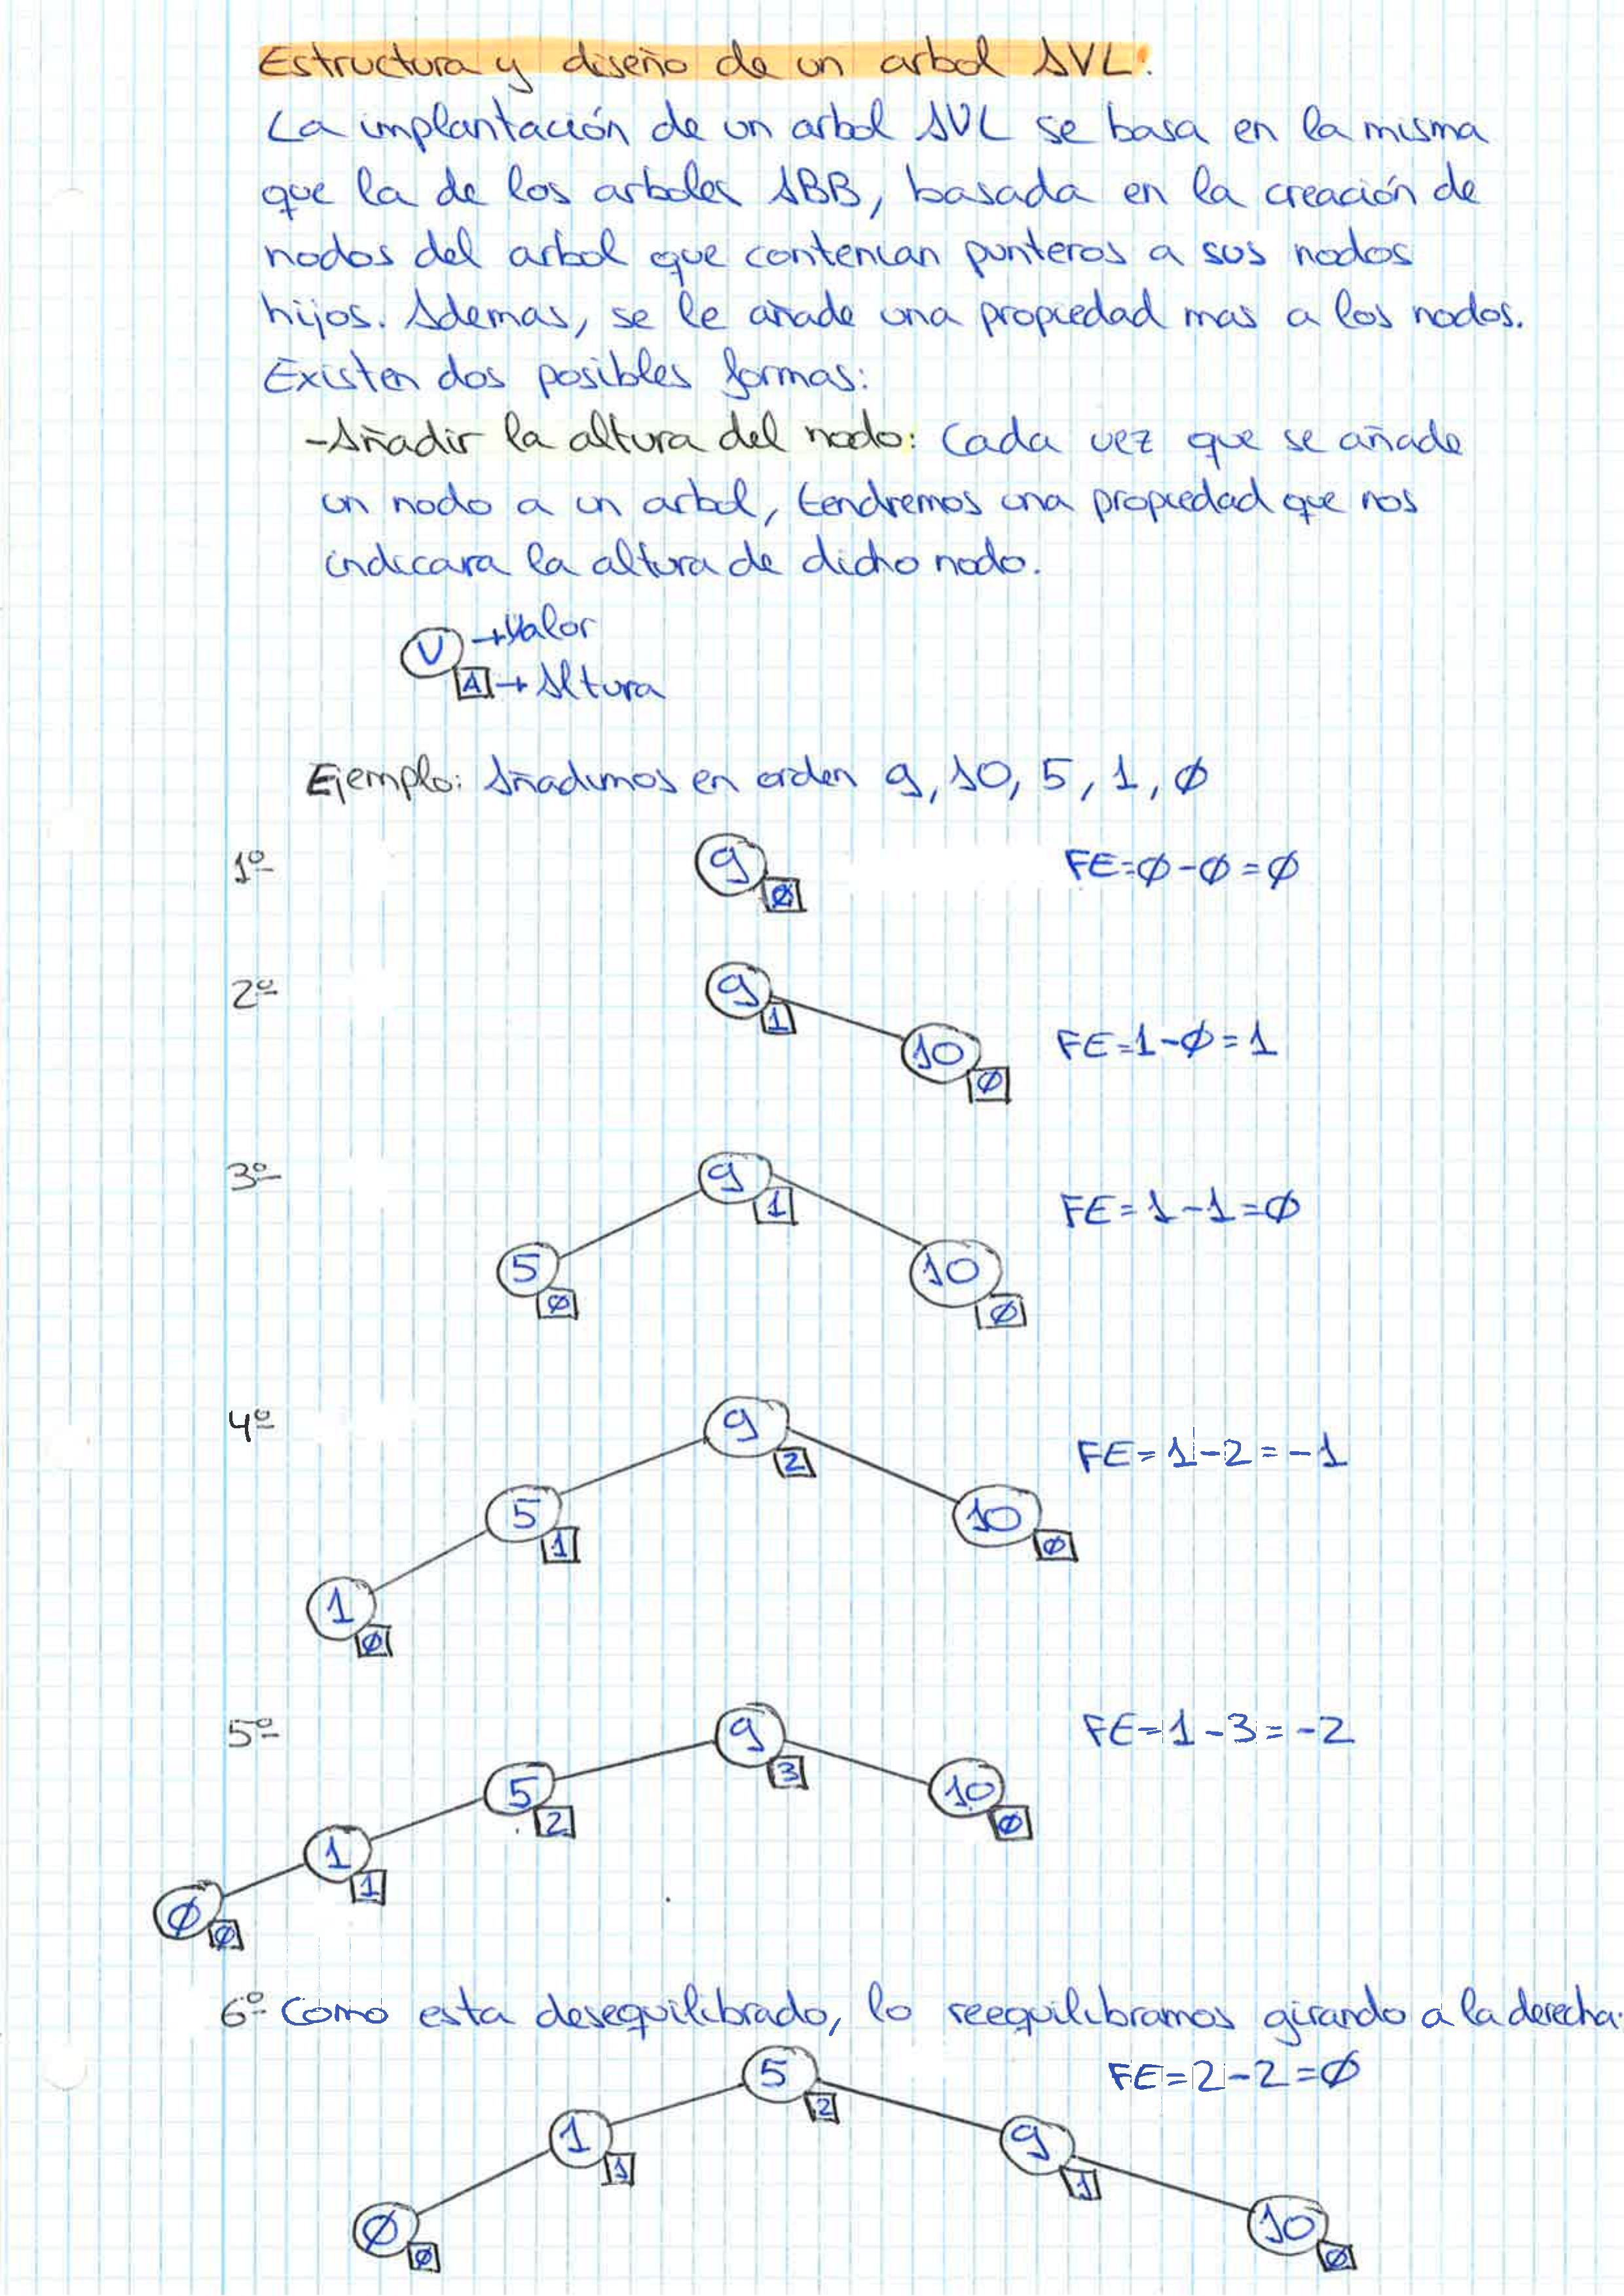 Estructura y diseño de un arbol AVL.
La implantación de un arbol AVL se basa en la misma
que la de los arboles ABB, basada en la creación de
nodos del arbol que contenian punteros a sus nodos
hijos. Ademas, se le añade una propiedad mas a los nodos.
Existen dos posibles formas:
-Añadir la altura del nodo: Cada vez que se añade
un nodo a un arbol, tendremos una propiedad que nos
indicara la altura de dicho nodo.
V → Valor
A → Altura
Ejemplo: Añadimos en orden 9, 10, 5, 1, Ø
1º
9 Ø
FE=Ø-Ø=Ø
2º
9 1
10 Ø
FE=1-Ø=1
3º
9 1
5 Ø
10 Ø
FE=1-1=Ø
4º
9 2
5 1
10 Ø
1 Ø
FE=1-2=-1
5º
9 3
5 2
10 Ø
1 1
Ø Ø
FE=1-3=-2
6º Como esta desequilibrado, lo reequilibramos girando a la derecha.
5 2
FE=2-2=Ø
1 1
9 1
Ø Ø
10 Ø